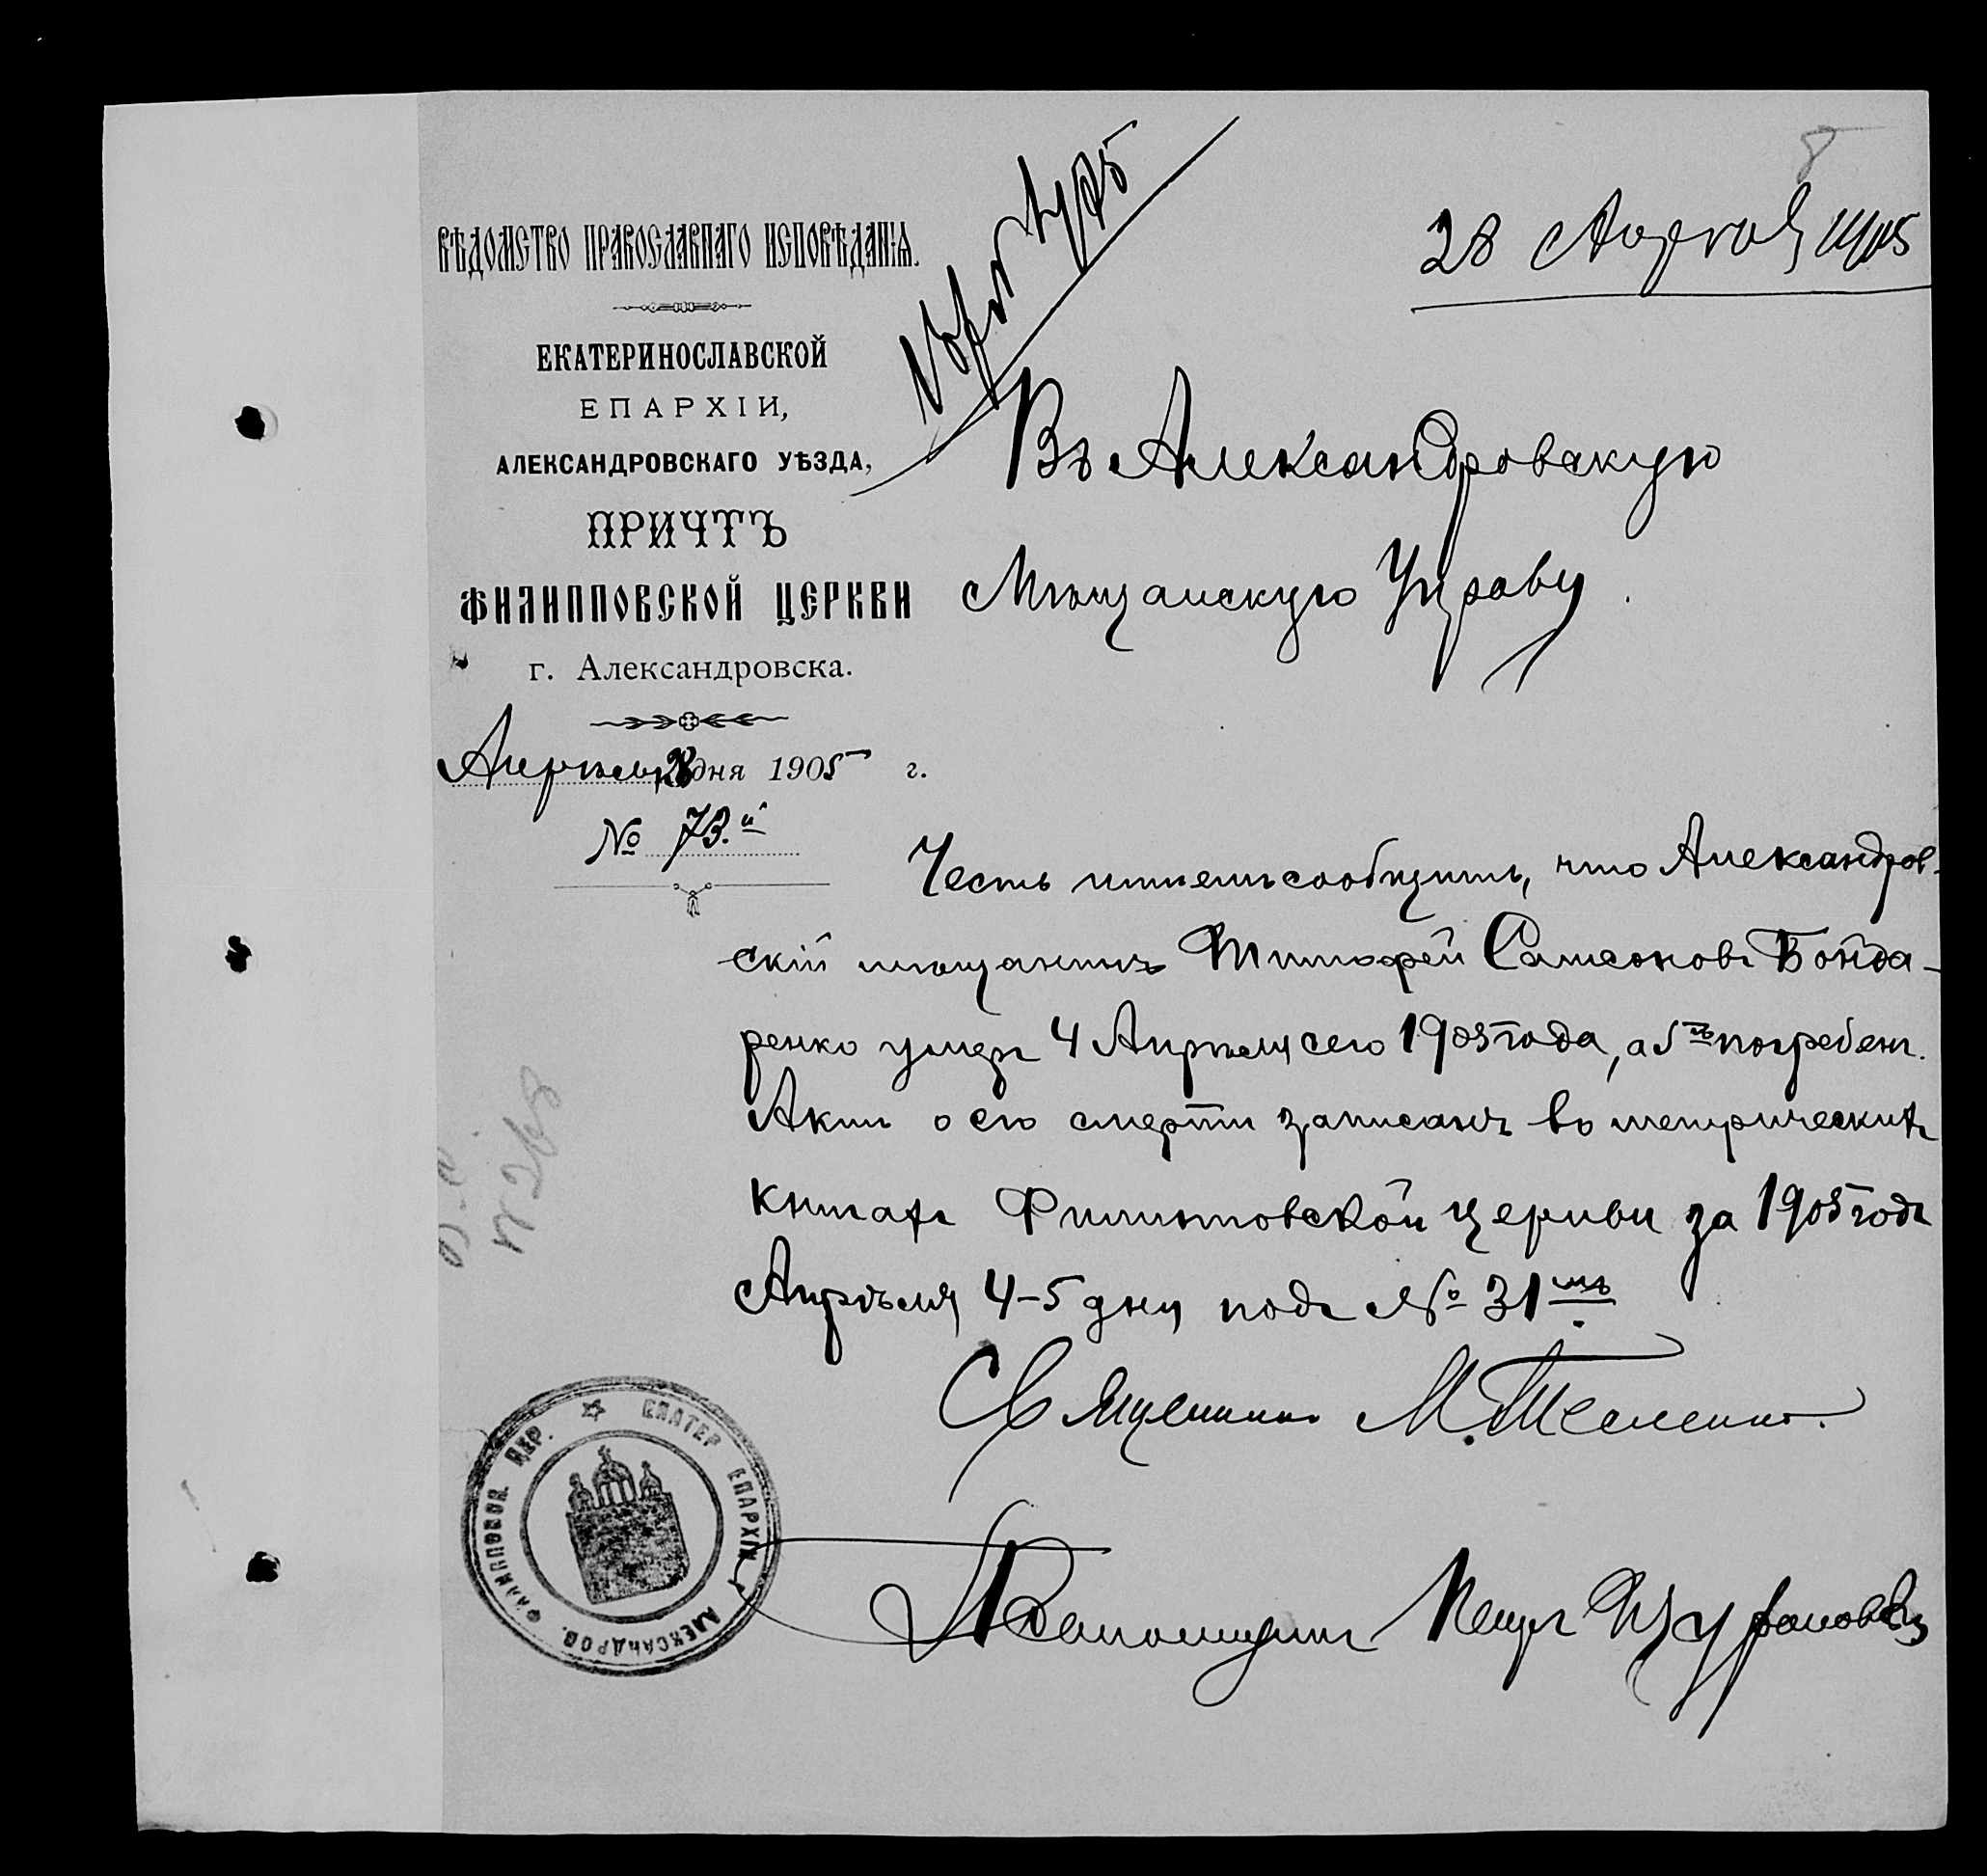 8
28 Апрѣля 1905
ВѢДОМСТВО ПРАВОСЛАВНАГО ИСПОВѢДАНІЯ.
ЕКАТЕРИНОСЛАВСКОЙ
ЕПАРХІИ,
АЛЕКСАНДРОВСКАГО УѢЗДА,
ПРИЧТЪ
ФИЛИППОВСКОЙ ЦЕРКВИ
г. Александровска.
Апрѣля 28 дня 1905 г.
№ 73.й
Въ Александровскую
Мѣщанскую Управу.
Честь имѣемъ сообщить, что Александров-
скій мѣщанинъ Тимофей Самсоновъ Бонда-
ренко умеръ 4 Апрѣля сего 1905 года, а 5го погребенъ.
Актъ о его смерти записанъ въ метрическихъ
книгахъ Филипповской церкви за 1905 годъ
Апрѣля 4-5 дня подъ № 31мъ.
Священникъ М.
Псаломщикъ Петръ
ЕКАТЕР. ЕПАРХІИ АЛЕКСАНДРОВ. ФИЛИППОВСК. ЦЕР.